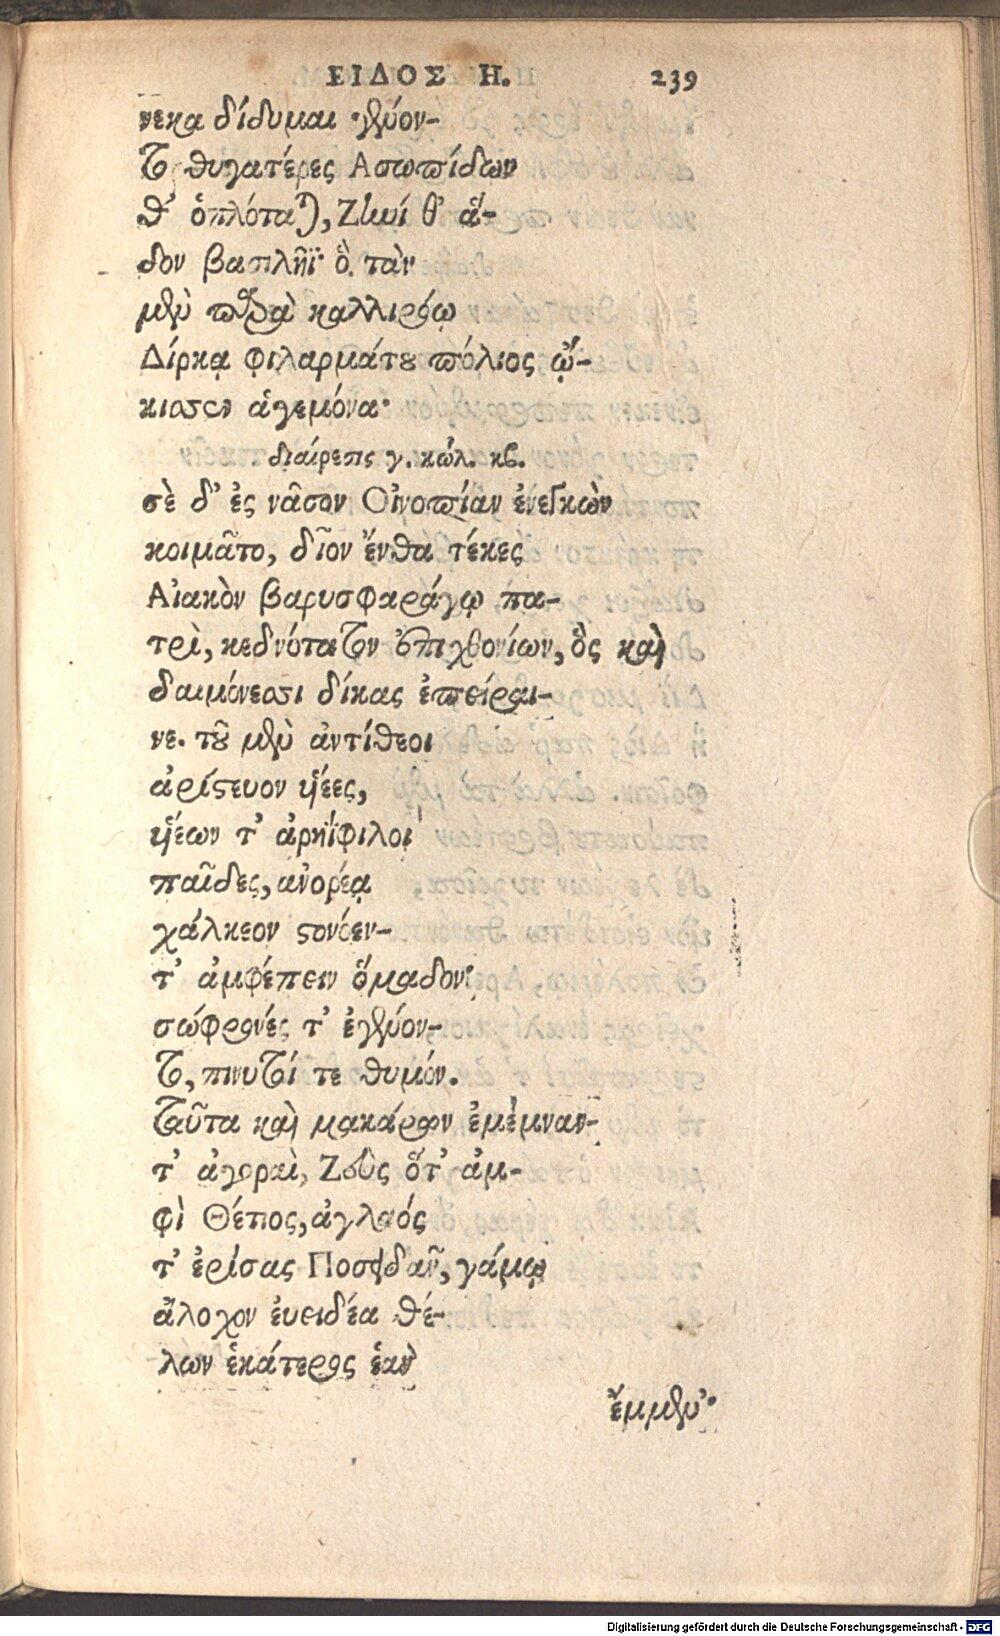 ΕΙΔΟΣ Η. 239
νεκα δίδυμαι γένον-
το θυγατέρες Ασωπίδων
θ' ὁπλόταται, Ζηνί θ' ἅ-
δον βασιλῆϊ· ὃ τὰν
μὲν παρὰ καλλιρόῳ
Δίρκᾳ φιλαρμάτου πόλιος ᾤ-
κισσεν ἁγεμόνα·
διαίρεσις γ. κώλ. κβ.
σὲ δ' ἐς νᾶσον Οἰνοπίαν ἐνεγκὼν
κοιμᾶτο, δῖον ἔνθα τέκες
Αἰακὸν βαρυσφαράγῳ πα-
τρὶ, κεδνότατον ἐπιχθονίων, ὃς καὶ
δαιμόνεσσι δίκας ἐπείραι-
νε. τοῦ μὲν ἀντίθεοι
ἀρίστευον υἱέες,
υἱέων τ' ἀρηΐφιλοι
παῖδες, ἀνορέᾳ
χάλκεον στονόεν-
τ' ἀμφέπειν ὅμαδον·
σώφρονές τ' ἐγένον-
το, πινυτοί τε θυμόν.
ταῦτα καὶ μακάρων ἐμέμναν-
τ' ἀγοραὶ, Ζεὺς ὅτ' ἀμ-
φὶ Θέτιος, ἀγλαός
τ' ἐρίσας Ποσειδᾶν, γάμῳ
ἄλοχον ἐυειδέα θέ-
λων ἑκάτερος ἑὰν
ἔμμεν·
Digitalisierung gefördert durch die Deutsche Forschungsgemeinschaft - DFG